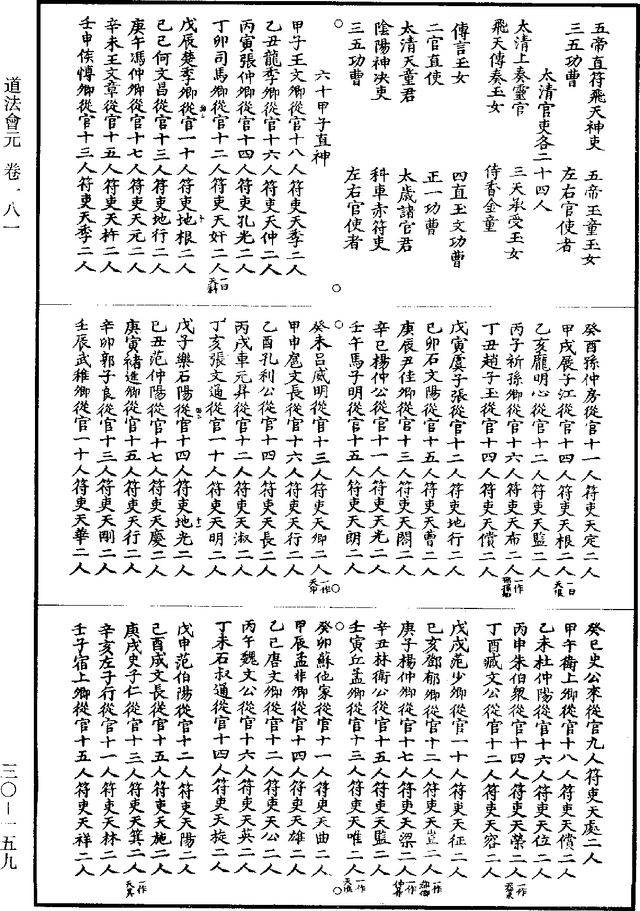 五帝直符飛天神吏　五帝玉童玉女
三五功曹　左右官使者
太清官吏各二十四人
太清上奏靈官　三天承受玉女
飛天傳奏玉女　侍香金童
傳言玉女　四直玉文功曹
二官直使　正一功曹
太清天童君　太歲諸官君
陰陽神决吏　科車赤符吏
三五功曹　左右官使者
六十甲子直神
甲子王文卿從官十八人符吏天季二人
乙丑龍季卿從官十六人符吏天仲二人
丙寅張仲卿從官十四人符吏孔光二人
丁卯司馬卿從官十二人符吏天奸二人
戊辰楚季卿從官一十人符吏地根二人
己巳何文昌從官十三人符吏地行二人
庚午馮仲卿從官十七人符吏天元二人
辛未王文章從官十五人符吏天杵二人
壬申侯博卿從官十三人符吏天季二人
癸酉孫仲房從官十一人符吏天定二人
甲戌展子江從官十四人符吏天根二人
乙亥龐明心從官十二人符吏天監二人
丙子祈孫卿從官十六人符吏天布二人
丁丑趙子玉從官十四人符吏天償二人
戊寅虞子張從官十二人符吏地行二人
己卯石文陽從官十五人符吏天曹二人
庚辰尹佳卿從官十三人符吏天閣二人
辛巳楊仲公從官十一人符吏天光二人
壬午馬子明從官十五人符吏天朗二人
癸未呂威明從官十三人符吏天卿二人
甲申扈文長從官十六人符吏天行二人
乙酉孔利公從官十四人符吏天長二人
丙戌車元昇從官十二人符吏天淑二人
丁亥張文通從官一十人符吏天明二人
戊子樂石陽從官十四人符吏地光二人
己丑范仲陽從官十七人符吏天慶二人
庚寅褚進卿從官十五人符吏天行二人
辛卯郭子良從官十三人符吏天剛二人
壬辰武稚卿從官一十人符吏天華二人
癸巳史公來從官九人符吏天處二人
甲午衛上卿從官十八人符吏天償二人
乙未杜仲陽從官十六人符吏天位二人
丙申朱伯衆從官十四人符吏天榮二人
丁酉臧文公從官十二人符吏天容二人
戊戌范少卿從官一十人符吏天征二人
己亥鄧郁卿從官十二人符吏天豈二人
庚子楊仲卿從官十七人符吏天梁二人
辛丑林衛公從官十五人符吏天監二人
壬寅丘孟卿從官十三人符吏天唯二人
癸卯蘇他家從官十一人符吏天曲二人
甲辰孟非卿從官十四人符吏天雄二人
乙巳唐文卿從官十二人符吏天公二人
丙午魏文公從官十六人符吏天英二人
丁未石叔通從官十四人符吏天旋二人
戊申范伯陽從官十二人符吏天陽二人
己酉成文長從官十五人符吏天施二人
庚戌史子仁從官十三人符吏天箕二人
辛亥左子行從官十一人符吏天林二人
壬子宿上卿從官十五人符吏天祥二人
道法會元　卷一八一
三〇—一五九